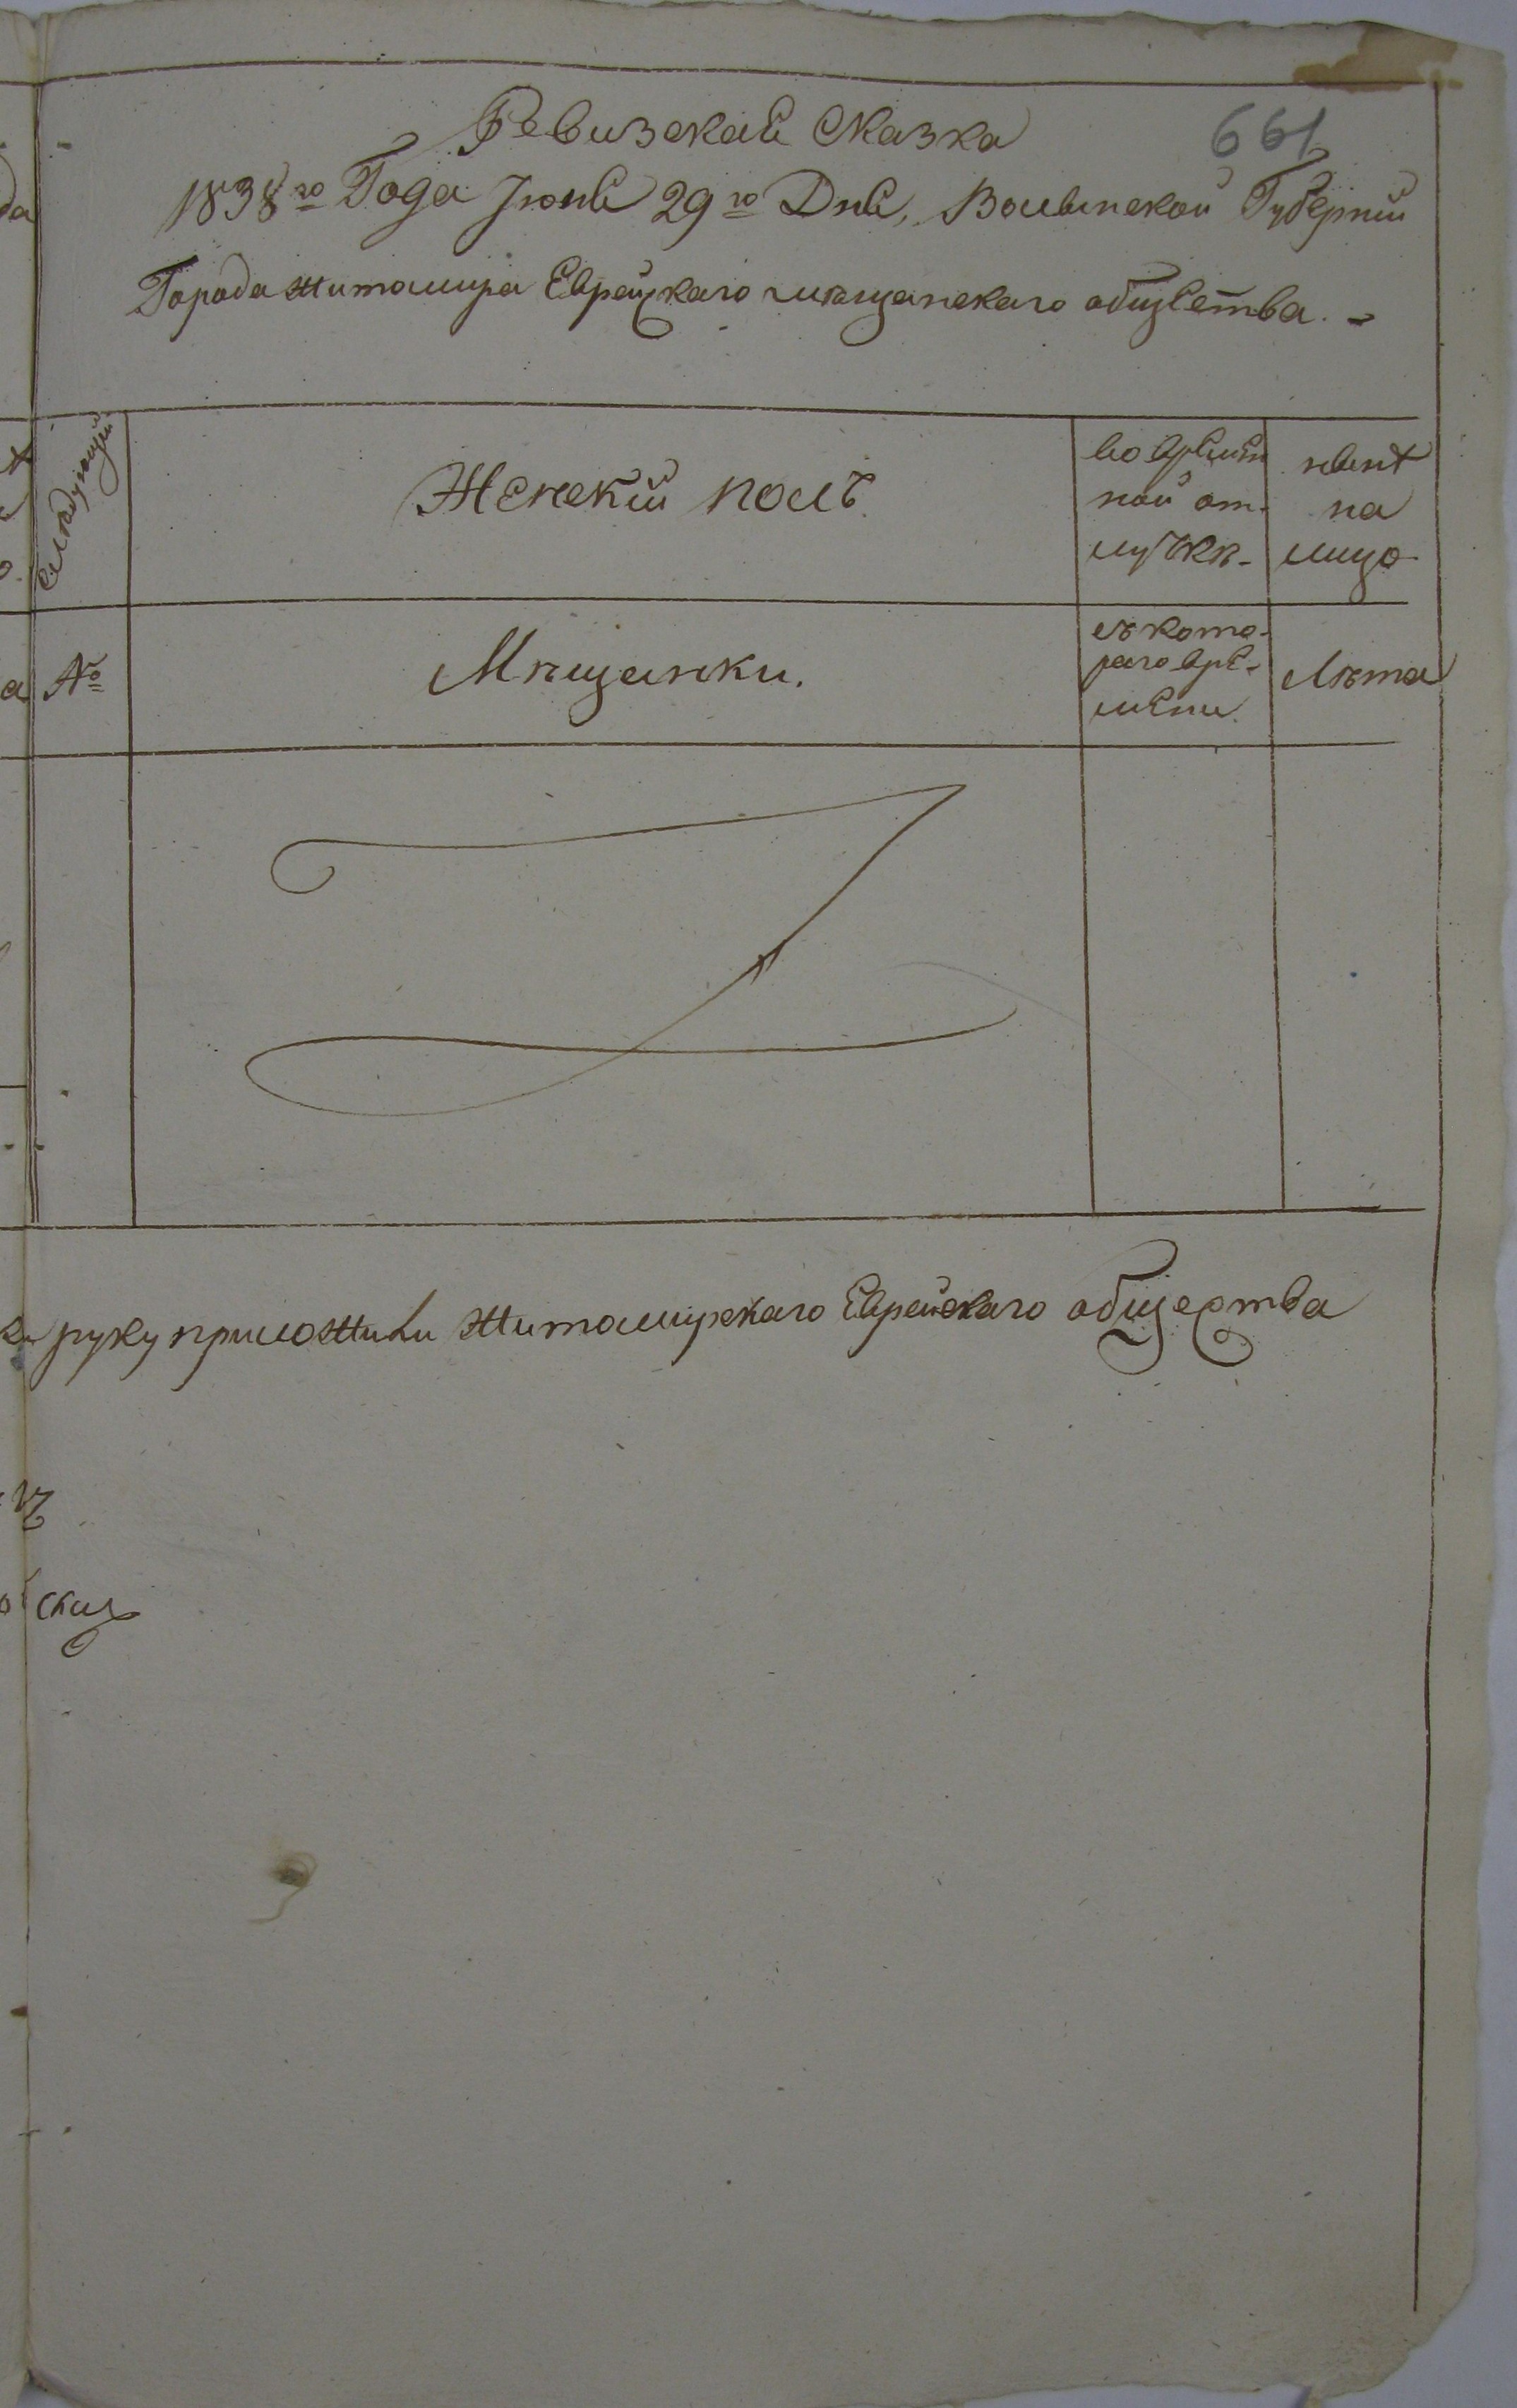 Ревизская Сказка
661
1838го Года Іюня 29го Дня, Волынской Губерніи
Города Житомира Еврейскаго мѣщанскаго общества.
Слѣдующій
Женскій полъ
во времен
ной от-
лучкѣ-
нынѣ
на
лицо
№
Мѣщанки.
съ кото-
раго вре-
мени.
Лѣта
руку приложили Житомирскаго Еврейскаго общества